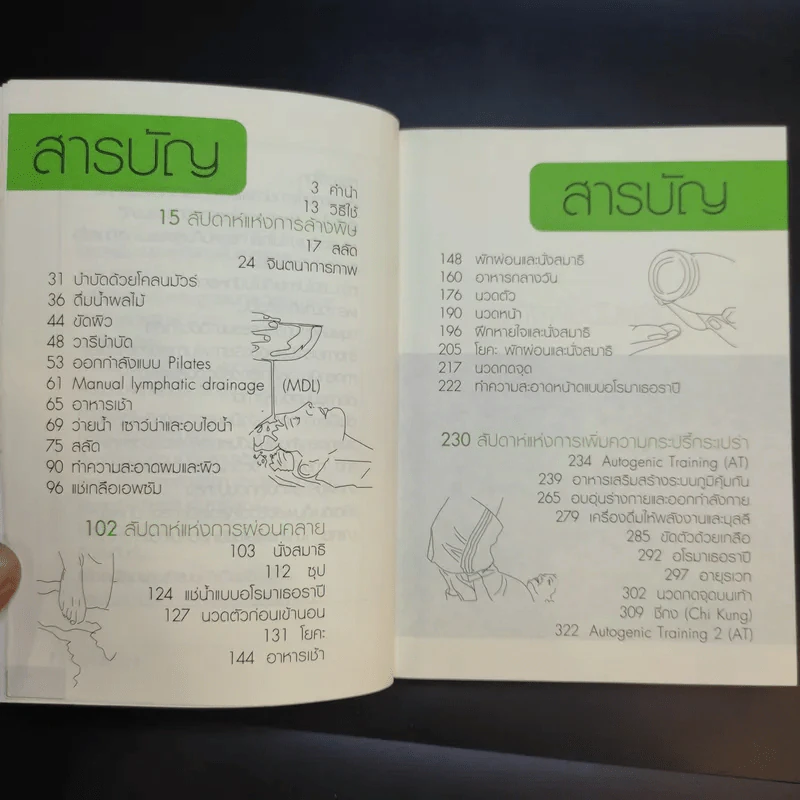 สารบัญ
3 คำนำ
13 วิธีใช้
15 สัปดาห์แห่งการล้างพิษ
17 สลัด
24 จินตนาการภาพ
31 บำบัดด้วยโคลนมัวร์
36 ดื่มน้ำผลไม้
44 ขัดผิว
48 วารีบำบัด
53 ออกกำลังแบบ Pilates
61 Manual lymphatic drainage (MDL)
65 อาหารเช้า
69 ว่ายน้ำ เซาว์น่าและอบไอน้ำ
75 สลัด
90 ทำความสะอาดผมและผิว
96 แช่เกลือเอพซัม
102 สัปดาห์แห่งการผ่อนคลาย
103 นั่งสมาธิ
112 ซุป
124 แช่น้ำแบบอโรมาเธอราปี
127 นวดตัวก่อนเข้านอน
131 โยคะ
144 อาหารเช้า
สารบัญ
148 พักผ่อนและนั่งสมาธิ
160 อาหารกลางวัน
176 นวดตัว
190 นวดหน้า
196 ฝึกหายใจและนั่งสมาธิ
205 โยคะ พักผ่อนและนั่งสมาธิ
217 นวดกดจุด
222 ทำความสะอาดหน้าดแบบอโรมาเธอราปี
230 สัปดาห์แห่งการเพิ่มความกระปรี้กระเปร่า
234 Autogenic Training (AT)
239 อาหารเสริมสร้างระบบภูมิคุ้มกัน
265 อบอุ่นร่างกายและออกกำลังกาย
279 เครื่องดื่มให้พลังงานและมูสลี
285 ขัดตัวด้วยเกลือ
292 อโรมาเธอราปี
297 อายุรเวท
302 นวดกดจุดบนเท้า
309 ชี่กง (Chi Kung)
322 Autogenic Training 2 (AT)